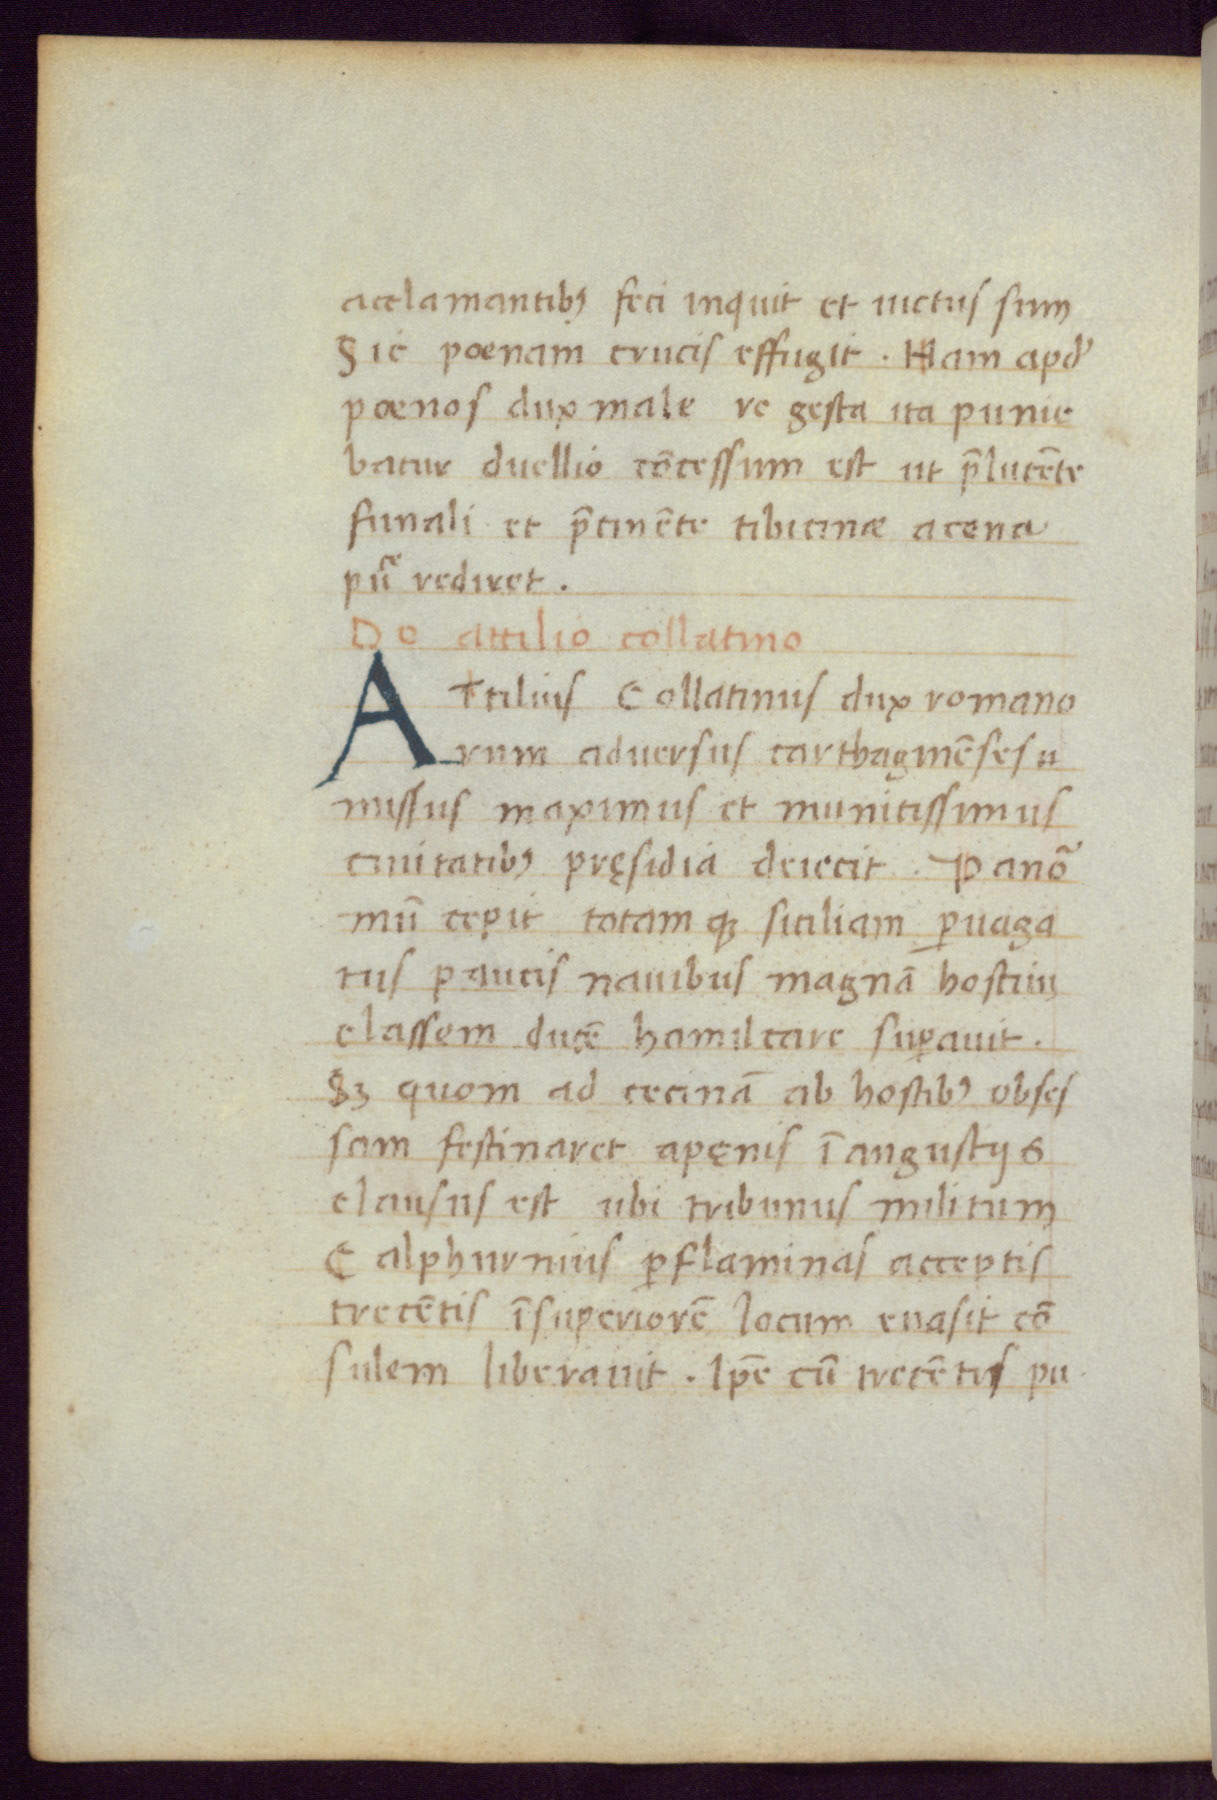 acclamantibꝰ feci inquit et uictus sum
Sic poenam crucis effugit · Nam apd̕
pœnos dux male re gesta ita punie
batur duellio cōcessum est ut p̄lucēte
funali et p̄cinēte tibicinæ acena
pu᷒ rediret ·
De attilio collatino
Attilius Collatinus dux romano
rum aduersus carthaginēses u
missus maximus et munitissimus
ciuitatibꝰ pręsidia deiecit · Panō
mū cepit totam qꝫ siciliam ꝑuaga
tus paucis nauibus magnā hostiū
classem ducē hamilcare suꝑauit ·
Sꝫ quom ad cecinā ab hostibꝰ obses
sam festinaret apęnis ī angustijs
clausus est ubi tribunus militum
Calphurnius ꝑ flaminas acceptis
trecētis ī superiorē locum euasit cō
sulem liberauit · Ip̄e cū trecētis pu